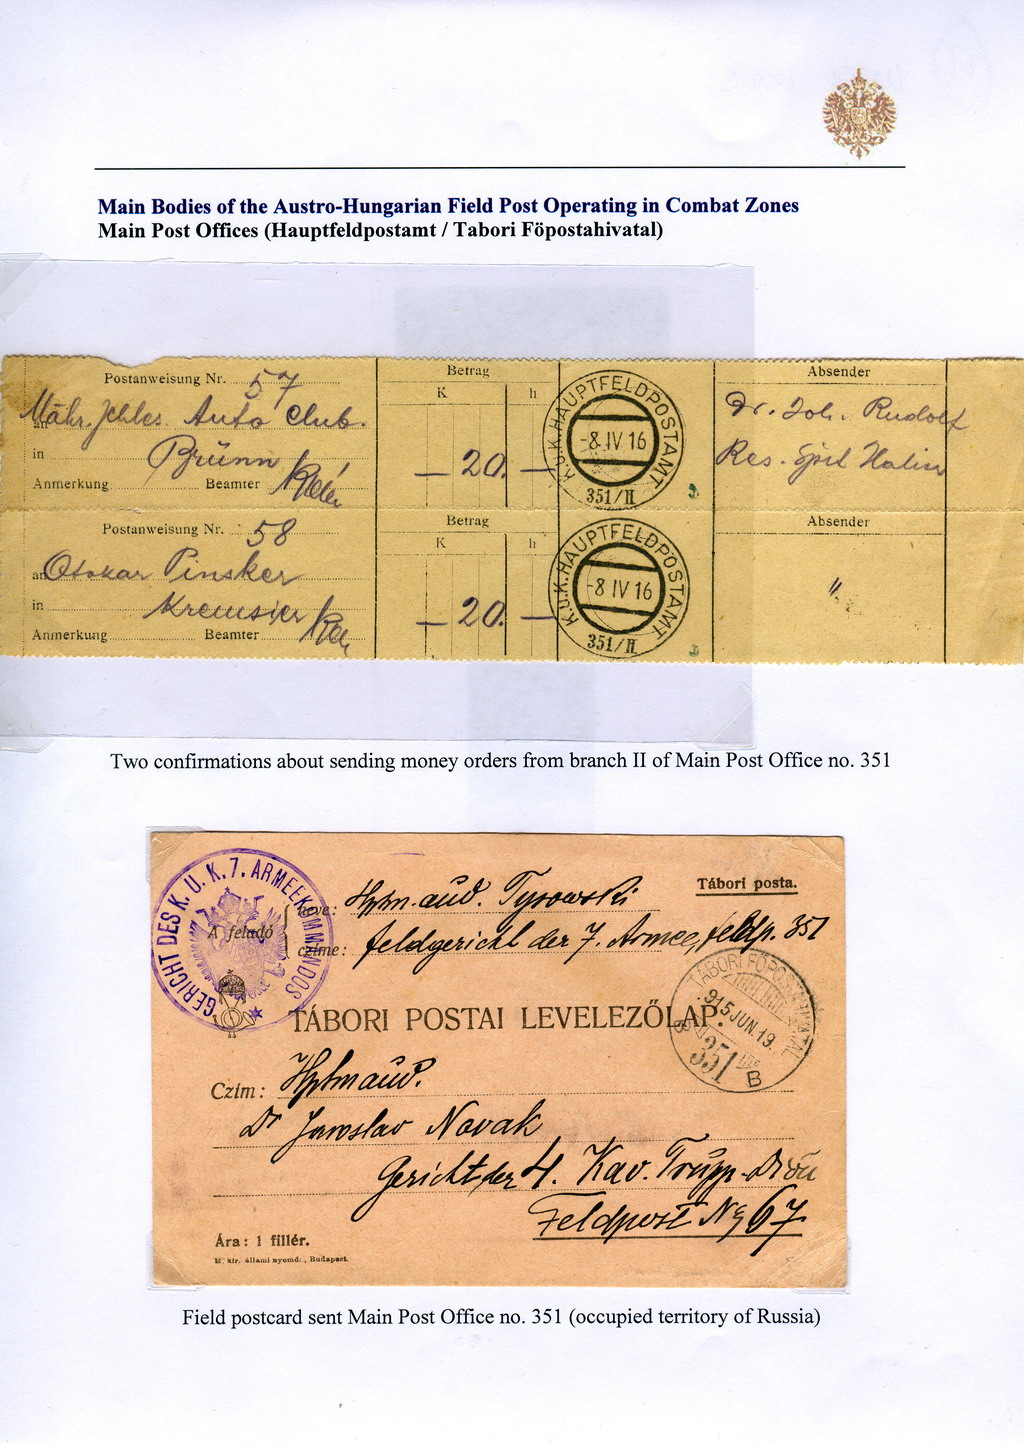 Main Bodies of the Austro-Hungarian Field Post Operating in Combat Zones
Main Post Offices (Hauptfeldpostamt / Tabori Föpostahivatal)
Postanweisung Nr. 57
Betrag
Absender
K h
an Mähr. Schles. Auto Club.
in Brünn
— 20. —
Anmerkung Beamter
K.U.K. HAUPTFELDPOSTAMT
-8.IV 16
351/II
Dr. Joh. Rudolf
Res.
Postanweisung Nr. 58
Betrag
Absender
K h
an Otokar Pinsker
in Kremsier
— 20. —
Anmerkung Beamter
K.U.K. HAUPTFELDPOSTAMT
-8 IV 16
351/II
"
Two confirmations about sending money orders from branch II of Main Post Office no. 351
GERICHT DES K.U.K. 7. ARMEEKOMMANDOS
Tábori posta.
A feladó
neve: Hptm. aud. Tysowski
czíme: Feldgericht der 7. Armee, Feldp. 351
TÁBORI FŐPOSTAHIVATAL
915 JUN. 19.
351
B
TÁBORI POSTAI LEVELEZŐLAP.
Czím: Hptm aud.
Dr Jaroslav Novak
Gericht der 4. Kav. Trupp. Divön
Feldpost No 67
Ára: 1 fillér.
M. kir. állami nyomd., Budapest.
Field postcard sent Main Post Office no. 351 (occupied territory of Russia)